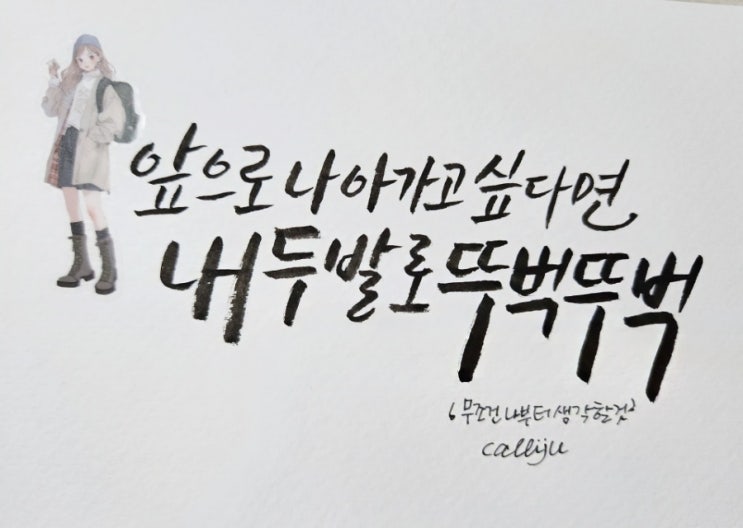 앞으로 나아가고 싶다면
내 두발로 뚜벅뚜벅
'무조건 나부터 생각할것'
calliju